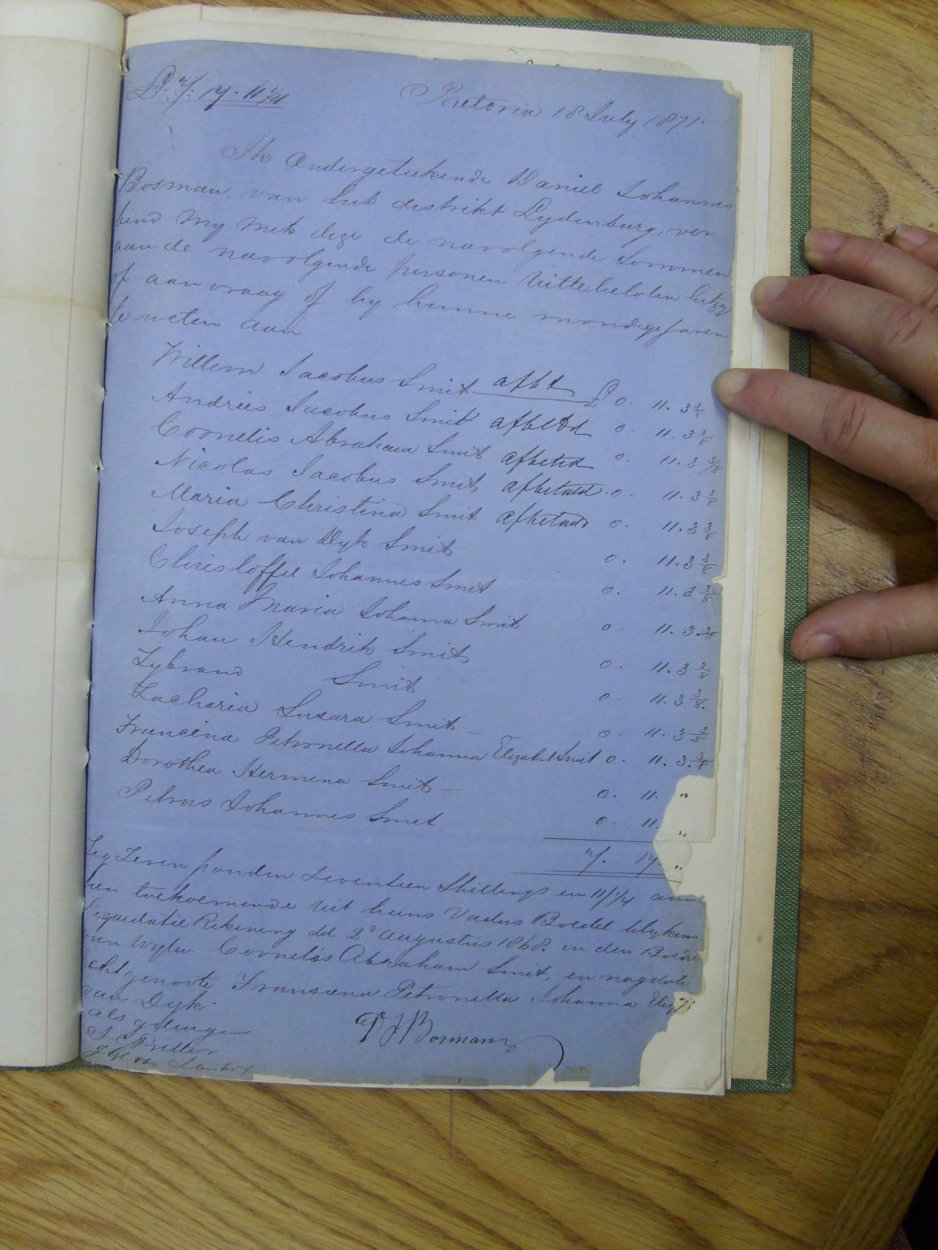 Pretoria 18 July 1871.
Ik Ondergetekende Daniel Johannes
Bosman, van het distrikt Lydenburg, ver
bind my met deze de navolgende Sommen
aan de navolgende personen Uittebetalen hetzy
op aanvraag of by hunne mondige jaren
te weten aan
Willem Jacobus Smit afbt £ 0. 11. 3
Andries Jacobus Smit afbetd 0. 11. 3
Cornelis Abraham Smit afbetad 0. 11. 3
Nicolas Jacobus Smit afbetaald 0. 11. 3
Maria Christina Smit afbetaad 0. 11. 3
Joseph van Dyk Smit 0. 11. 3
Christoffel Johannes Smit 0. 11. 3
Anna Maria Johanna Smit 0. 11. 3
Johan Hendrik Smit 0. 11. 3
Zybrand Smit 0. 11. 3
Zacharia Susara Smit – 0. 11. 3
Francina Petronella Johanna Elizabt Smit 0. 11. 3
Dorothea Hermina Smit – 0. 11. "
Petrus Johannes Smit 0. 11. "
7. 17. "
Zeven ponden Zeventien Shillings en 11 1/4 aan
hen toekomende uit huns Vaders Boedel blyken
Liquidatie Rekening dd 2d Augustus 1868 in den Boedel
van Wylen Cornelis Abraham Smit, en nagelate
echtgenoote Fransina Petronella Johanna Eliz
van Dyk
als getuigen
D J Bosman